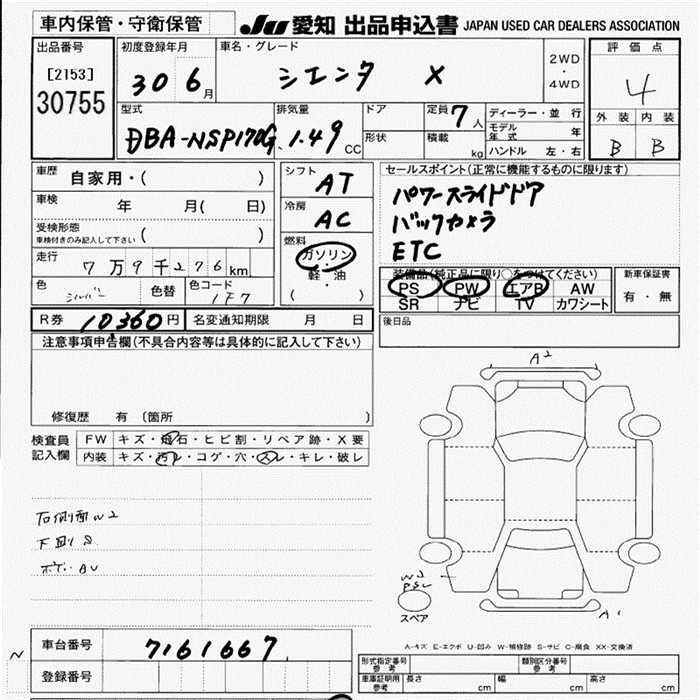 車内保管・守衛保管 JU 愛知 出品申込書 JAPAN USED CAR DEALERS ASSOCIATION
出品番号 [2153] 30755
初度登録年月 30 6月
車名・グレード シエンタ X
2WD・4WD
評価点 4
外装 内装
B B
型式 DBA-NSP170G
排気量 1.49 CC
ドア
形状
定員 7人
積載 kg
ディーラー・並行
モデル年式 年
ハンドル 左・右
車歴 自家用・( )
車検 年 月( 日)
受検形態 ( )
車検付きのみ記入して下さい
走行 7万9千276km
色 シルバー 色替 色コード 1F7
シフト AT
冷房 AC
燃料 ガソリン・軽・油
( )
セールスポイント(正常に機能するものに限ります)
パワースライドドア
バックカメラ
ETC
装備品(純正品に限り○をつけてください)
PS PW エアB AW
SR ナビ TV カワシート
新車保証書
有・無
R券 10,360円 名変通知期限 月 日
後日品
注意事項申告欄(不具合内容等は具体的に記入して下さい)
修復歴 有 〔箇所 〕
検査員記入欄
FW キズ・飛石・ヒビ割・リペア跡・X要
内装 キズ・汚レ・コゲ・穴・スレ・キレ・破レ
右側面W2
下回りS
A2
W2
スペア
A1
A-キズ E-エクボ U-凹み W-補修跡 S-サビ C-腐食 XX-交換済
車台番号 7161667
登録番号
型式指定番号 参考
類別区分番号 参考
車庫証明用 参考 長さ cm 幅 cm 高さ cm